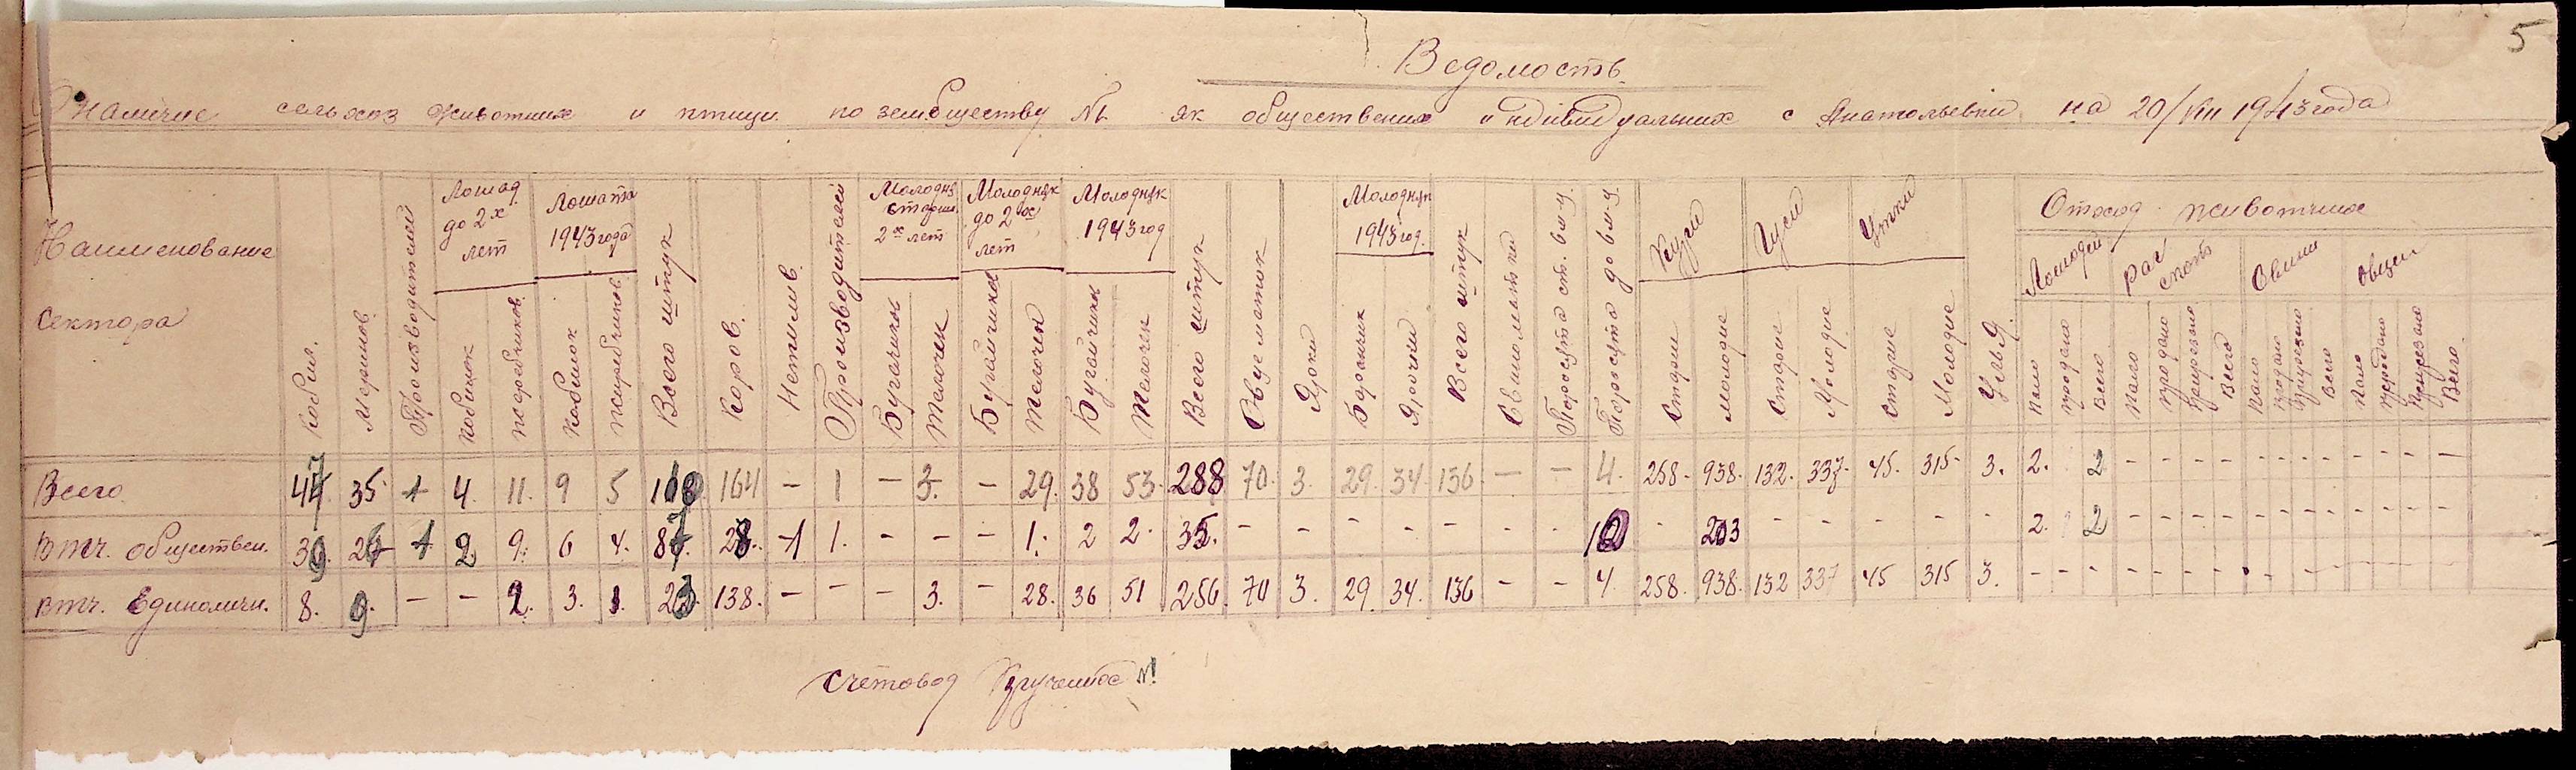 5
Ведомость
О наличие сельхоз животних и птици поземобществу № як обществених индивидуальних с Анатольевки на 20/VIII 1943 года
Наименование сектора
Кобил.
Меринов.
Производителей
Лошад. до 2х лет
кобилок
жеребчиков.
Лошата 1943 года
кобилок
жеребчиков
Всего штук
Коров.
Нетилив
Производителей
Молодня старши 2х лет
Бугайчики
Телочек
Молодняк до 2х лет
Бугайчики
Телочек
Молодняк 1943 год
Бугайчики
Телочек
Всего штук
Овцематок
Ярки
Молодняк 1943 год.
Баранчик
Ярочки
Всего штук
Свиноматки
Поросята ст. 6 м-ц.
Поросята до 6 м-ц.
Кури
Старие
молодие
Гуси
Старие
Молодие
Утки
Старие
Молодие
Отход животних
Лошадей
Пало
продано
Всего
Рог скот
Пало
продано
Прирезано
Всего
Свини
Пало
продано
Прирезано
Всего
Овци
Пало
продано
Прирезано
Всего
Всего 47 35 1 4 11. 9 5 164 - 1 - 3. - 29. 38 53. 288 70. 3. 29. 34. 136 - - 4. 258- 938. 132. 337- 45. 315- 3. 2. 2 - - - - - - - - - - - -
втч. обществен. 39. 26 1 2 9. 6 4. 87. 28. 1 1. - - - 1. 2 2. 35. - - - - - - - - 203 - - - - - 2. 2 - - - - - - - - - - - -
втч. Единоличн. 8. 9. - - 2. 3. 1. 23 138. - - - 3. - 28. 36 51 256. 70 3. 29. 34. 136 - - 4. 258. 938. 132 337 45 315 3. - - - - - - -
счетовод